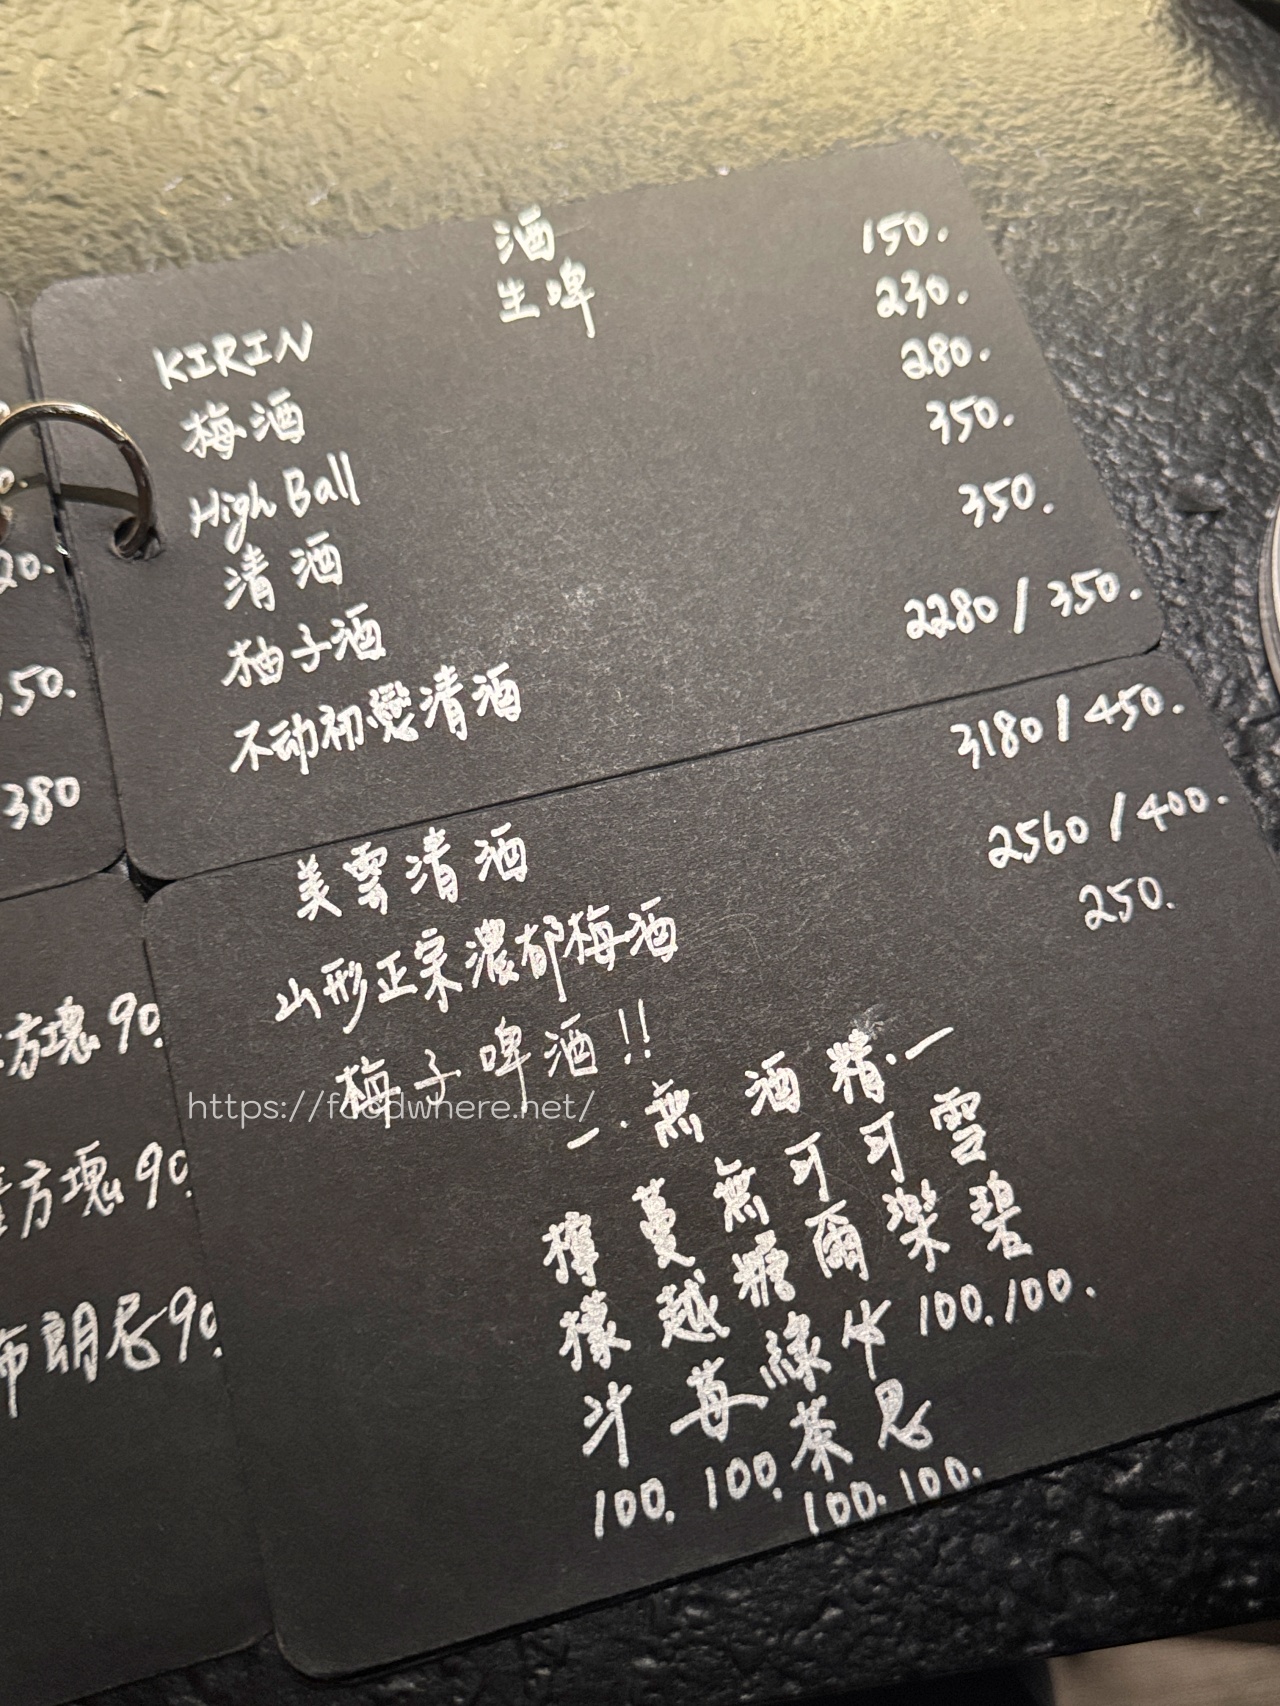 酒
KIRIN 生啤 150.
梅酒 230.
High Ball 280.
清酒 350.
柚子酒 350.
不动初戀清酒 2280/350.
美雲清酒 3180/450.
山形正宗濃郁梅酒 2560/400.
梅子啤酒!! 250.
一.無酒精.一
雪碧 100.
可樂 100.
可爾必思 100.
無糖綠茶 100.
蔓越莓 100.
檸檬汁 100.
20.
50.
380
方塊 90.
方塊 90.
布朗尼 90.
https://foodwhere.net/